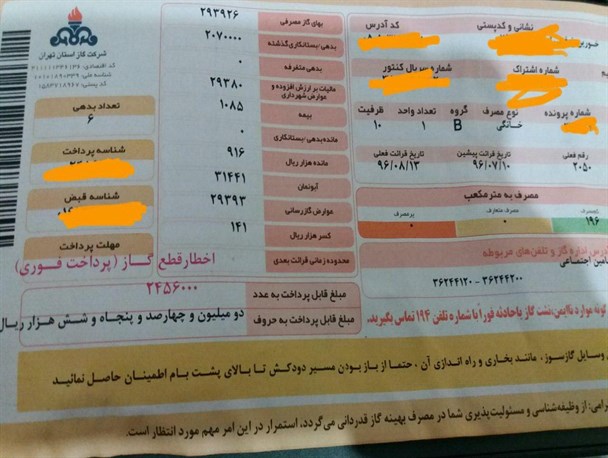 شرکت گاز استان تهران
کد اقتصادی:
شناسه ملی:
کد پستی:
نشانی و کدپستی
کد آدرس
شماره اشتراک
شماره سریال کنتور
شماره پرونده
نوع مصرف
خانگی
گروه
B
تعداد واحد
۱
ظرفیت
۱۰
رقم فعلی
۲۰۵۰
تاریخ قرائت پیشین
۹۶/۰۷/۱۰
تاریخ قرائت فعلی
۹۶/۰۸/۱۳
مصرف به مترمکعب
مصرف متعارف
پرمصرف
۱۹۶
۰
۰
اداره گاز و تلفن‌های مربوطه
تامین اجتماعی
۳۶۲۴۴۲۰۰ - ۳۶۲۴۴۱۲۰
بهای گاز مصرفی
۲۹۳۹۲۶
بدهی/بستانکاری گذشته
۲۰۷۰۰۰۰
بدهی متفرقه
۰
مالیات بر ارزش افزوده و عوارض شهرداری
۲۹۳۸۰
بیمه
۱۰۸۵
مانده بدهی/بستانکاری
۰
مانده هزار ریال
۹۱۶
آبونمان
۳۱۴۴۱
عوارض گازرسانی
۲۹۳۹۳
کسر هزار ریال
۱۴۱
محدوده زمانی قرائت بعدی
تعداد بدهی
۶
شناسه پرداخت
شناسه قبض
مهلت پرداخت
اخطار قطع گاز (پرداخت فوری)
مبلغ قابل پرداخت به عدد
۲۴۵۶۰۰۰
مبلغ قابل پرداخت به حروف
دو میلیون و چهارصد و پنجاه و شش هزار ریال
گونه موارد ناایمن، نشت گاز یا حادثه فوراً با شماره تلفن ۱۹۴ تماس بگیرید.
وسایل گازسوز ، مانند بخاری و راه اندازی آن ، حتما از باز بودن مسیر دودکش تا بالای پشت بام اطمینان حاصل نمائید
گرامی: از وظیفه‌شناسی و مسئولیت‌پذیری شما در مصرف بهینه گاز قدردانی می‌گردد، استمرار در این امر مهم مورد انتظار است.